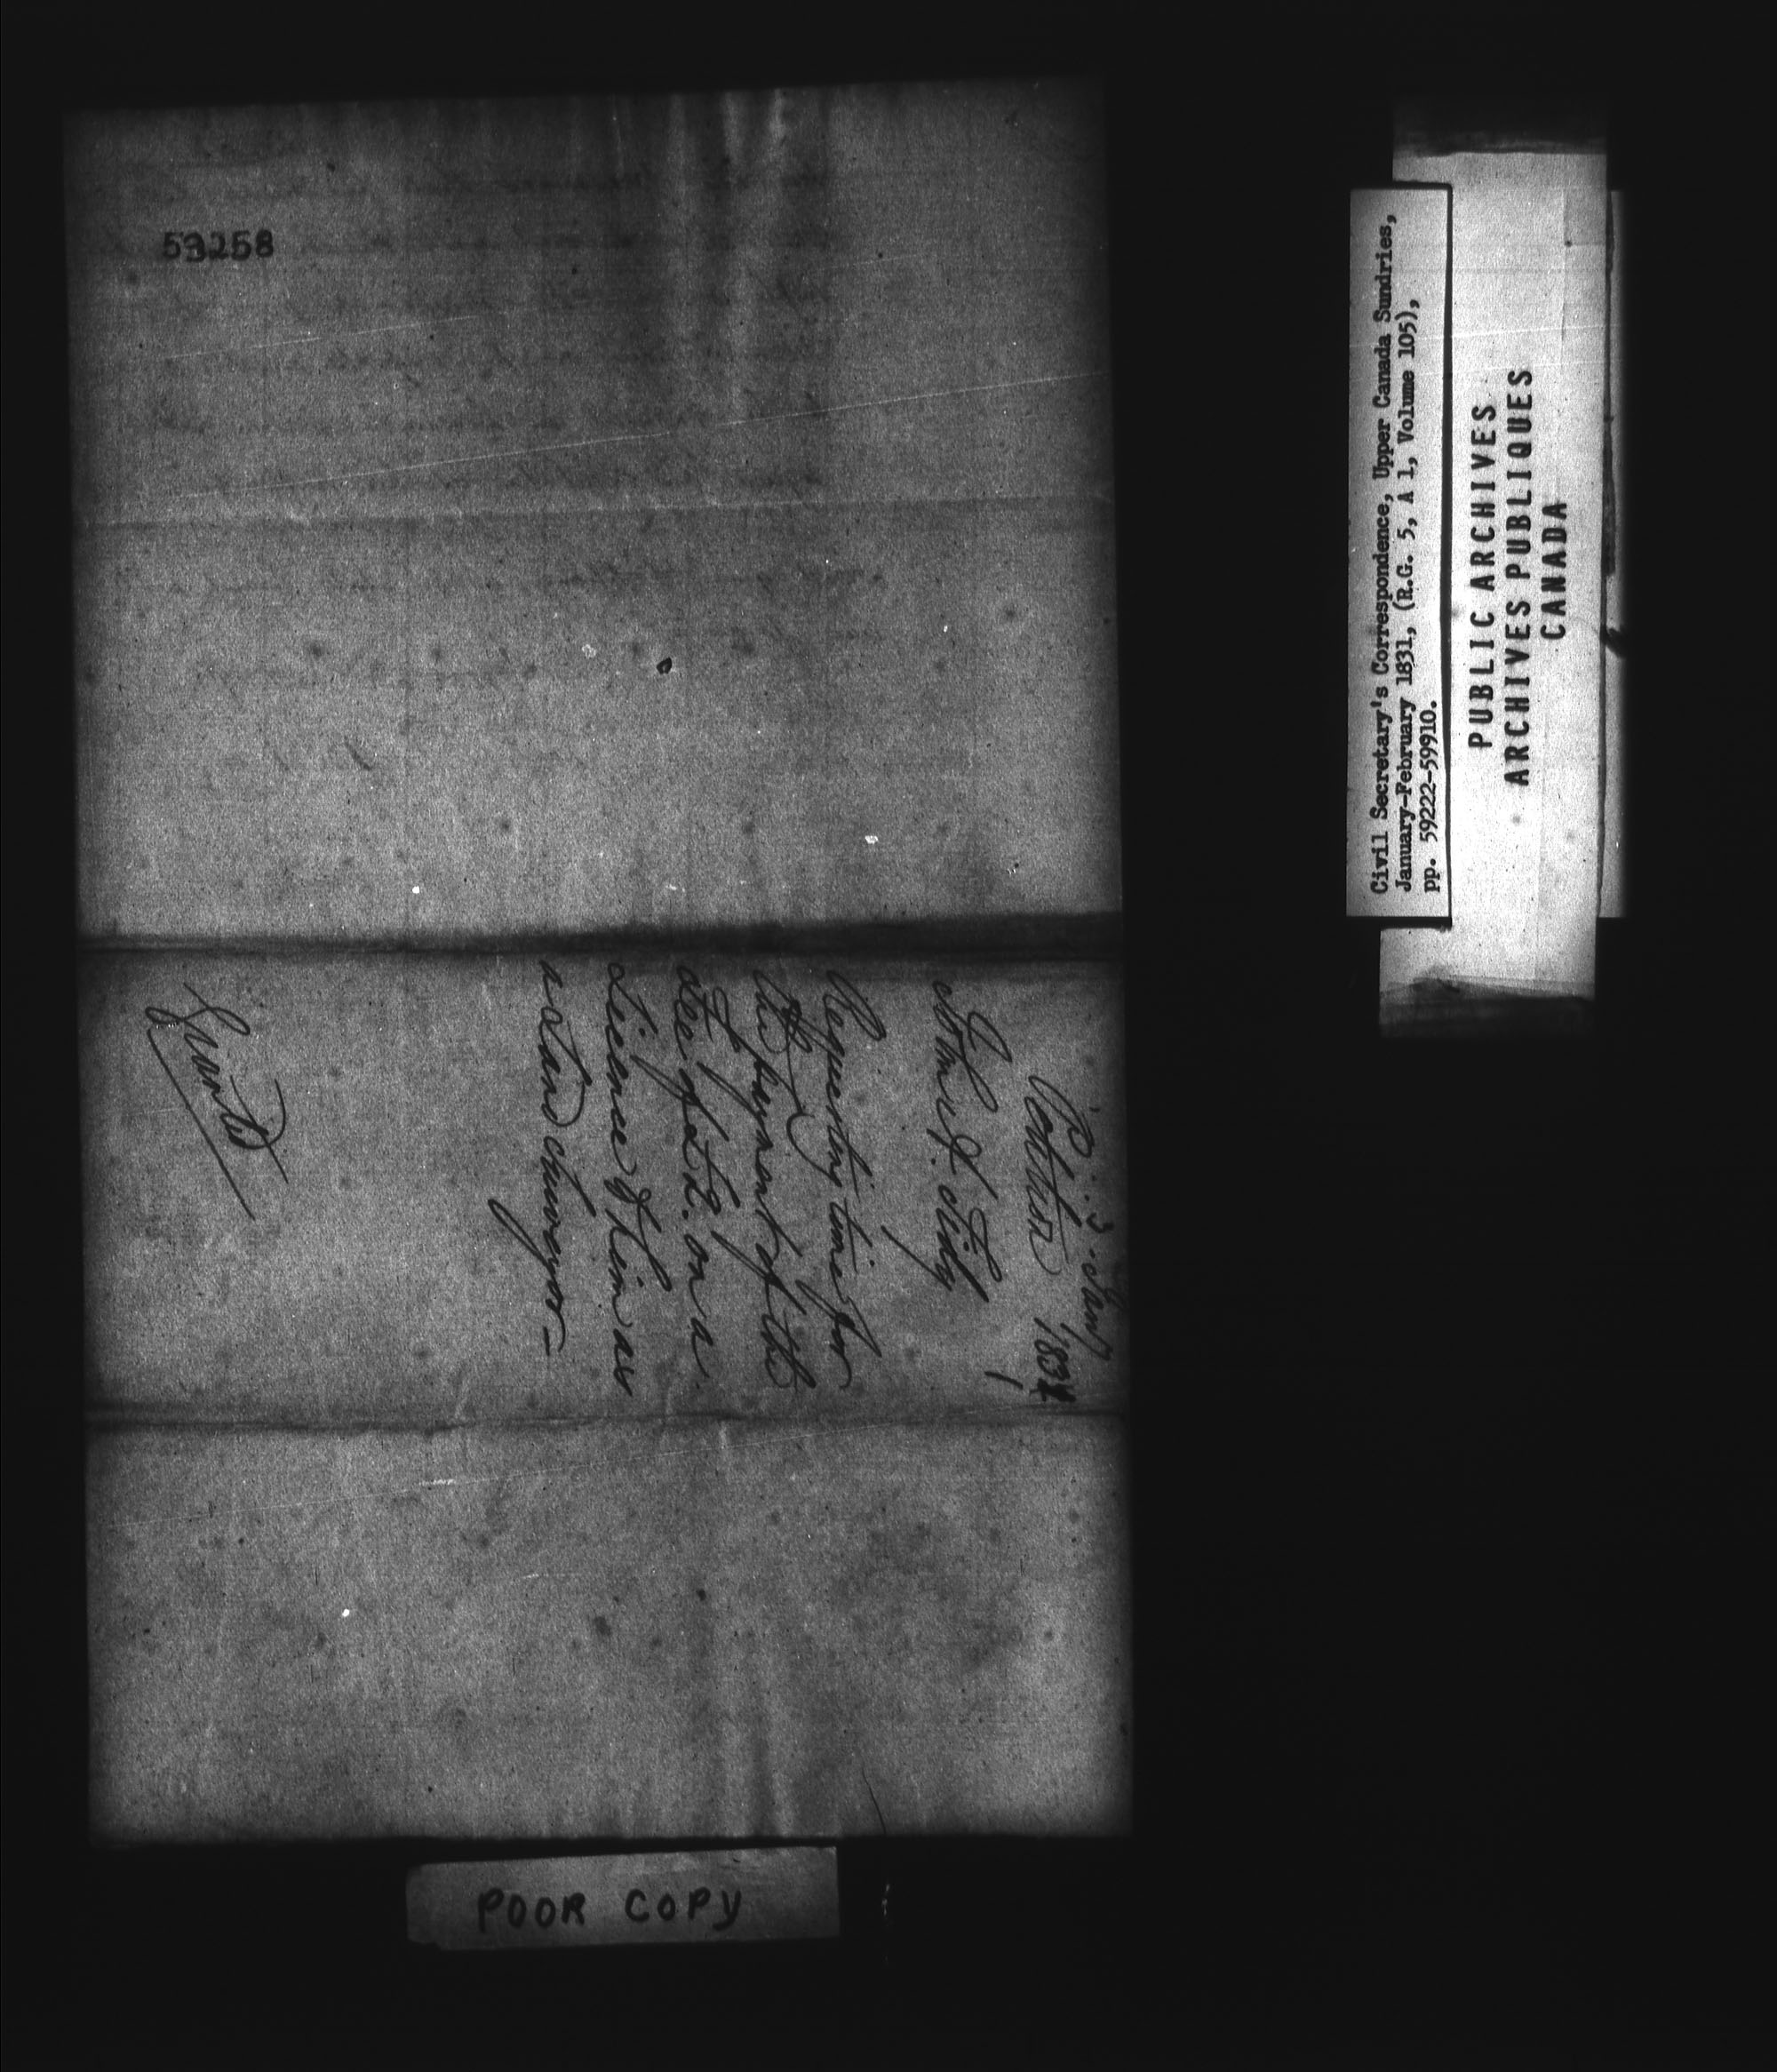 59258
3 Jany
Petition 1831
John K. 
Requesting time for
the payment of the
fee on a
Licence to him as
a Land Surveyor —
Granted
Civil Secretary's Correspondence, Upper Canada Sundries,
January-February 1831, (R.G. 5, A 1, Volume 105),
pp. 59222-59910.
PUBLIC ARCHIVES
ARCHIVES PUBLIQUES
CANADA
POOR COPY